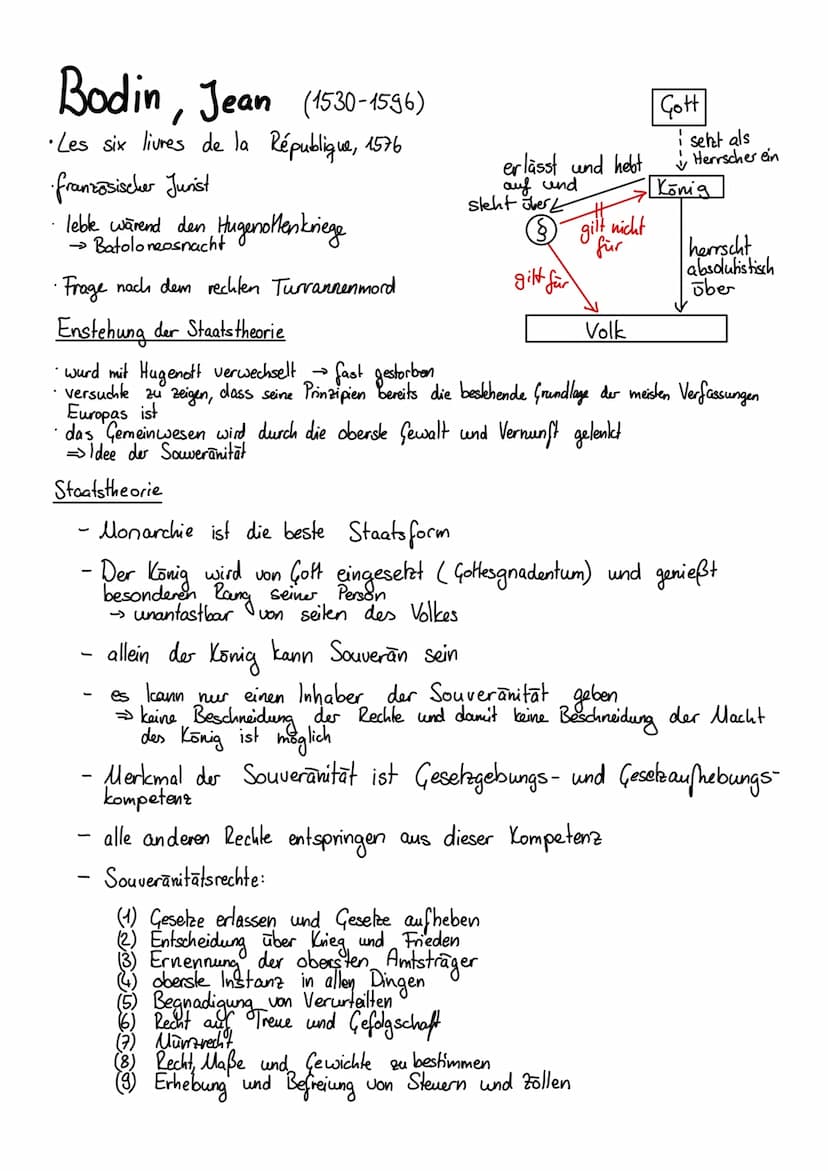 Bodin, Jean (1530-1596)
· Les six livres de la République, 1576
· französischer Jurist
· lebte wärend den Hugenottenkriege
→ Batoloneosnacht
· Frage nach dem rechten Turrannenmord
Gott
setzt als
Herrscher ein
König
erlässt und hebt
auf und
steht über
§
gilt nicht
für
gilt für
herrscht
absolutistisch
über
Volk
Enstehung der Staatstheorie
· wurd mit Hugenott verwechselt → fast gestorben
· versuchte zu zeigen, dass seine Prinzipien bereits die bestehende Grundlage der meisten Verfassungen
Europas ist
· das Gemeinwesen wird durch die oberste Gewalt und Vernunft gelenkt
⇒ Idee der Souveränität
Staatstheorie
- Monarchie ist die beste Staatsform
- Der König wird von Gott eingesetzt (Gottesgnadentum) und genießt
besonderen Rang seiner Person
→ unantastbar von seiten des Volkes
- allein der König kann Souverän sein
- es kann nur einen Inhaber der Souveränität geben
⇒ keine Beschneidung der Rechte und damit keine Beschneidung der Macht
des König ist möglich
- Merkmal der Souveränität ist Gesetzgebungs- und Gesetzaufhebungs-
kompetenz
- alle anderen Rechte entspringen aus dieser Kompetenz
- Souveränitätsrechte:
(1) Gesetze erlassen und Gesetze aufheben
(2) Entscheidung über Krieg und Frieden
(3) Ernennung der obersten Amtsträger
(4) oberste Instanz in allen Dingen
(5) Begnadigung von Verurteilten
(6) Recht auf Treue und Gefolgschaft
(7) Münzrecht
(8) Recht, Maße und Gewichte zu bestimmen
(9) Erhebung und Befreiung von Steuern und Zöllen